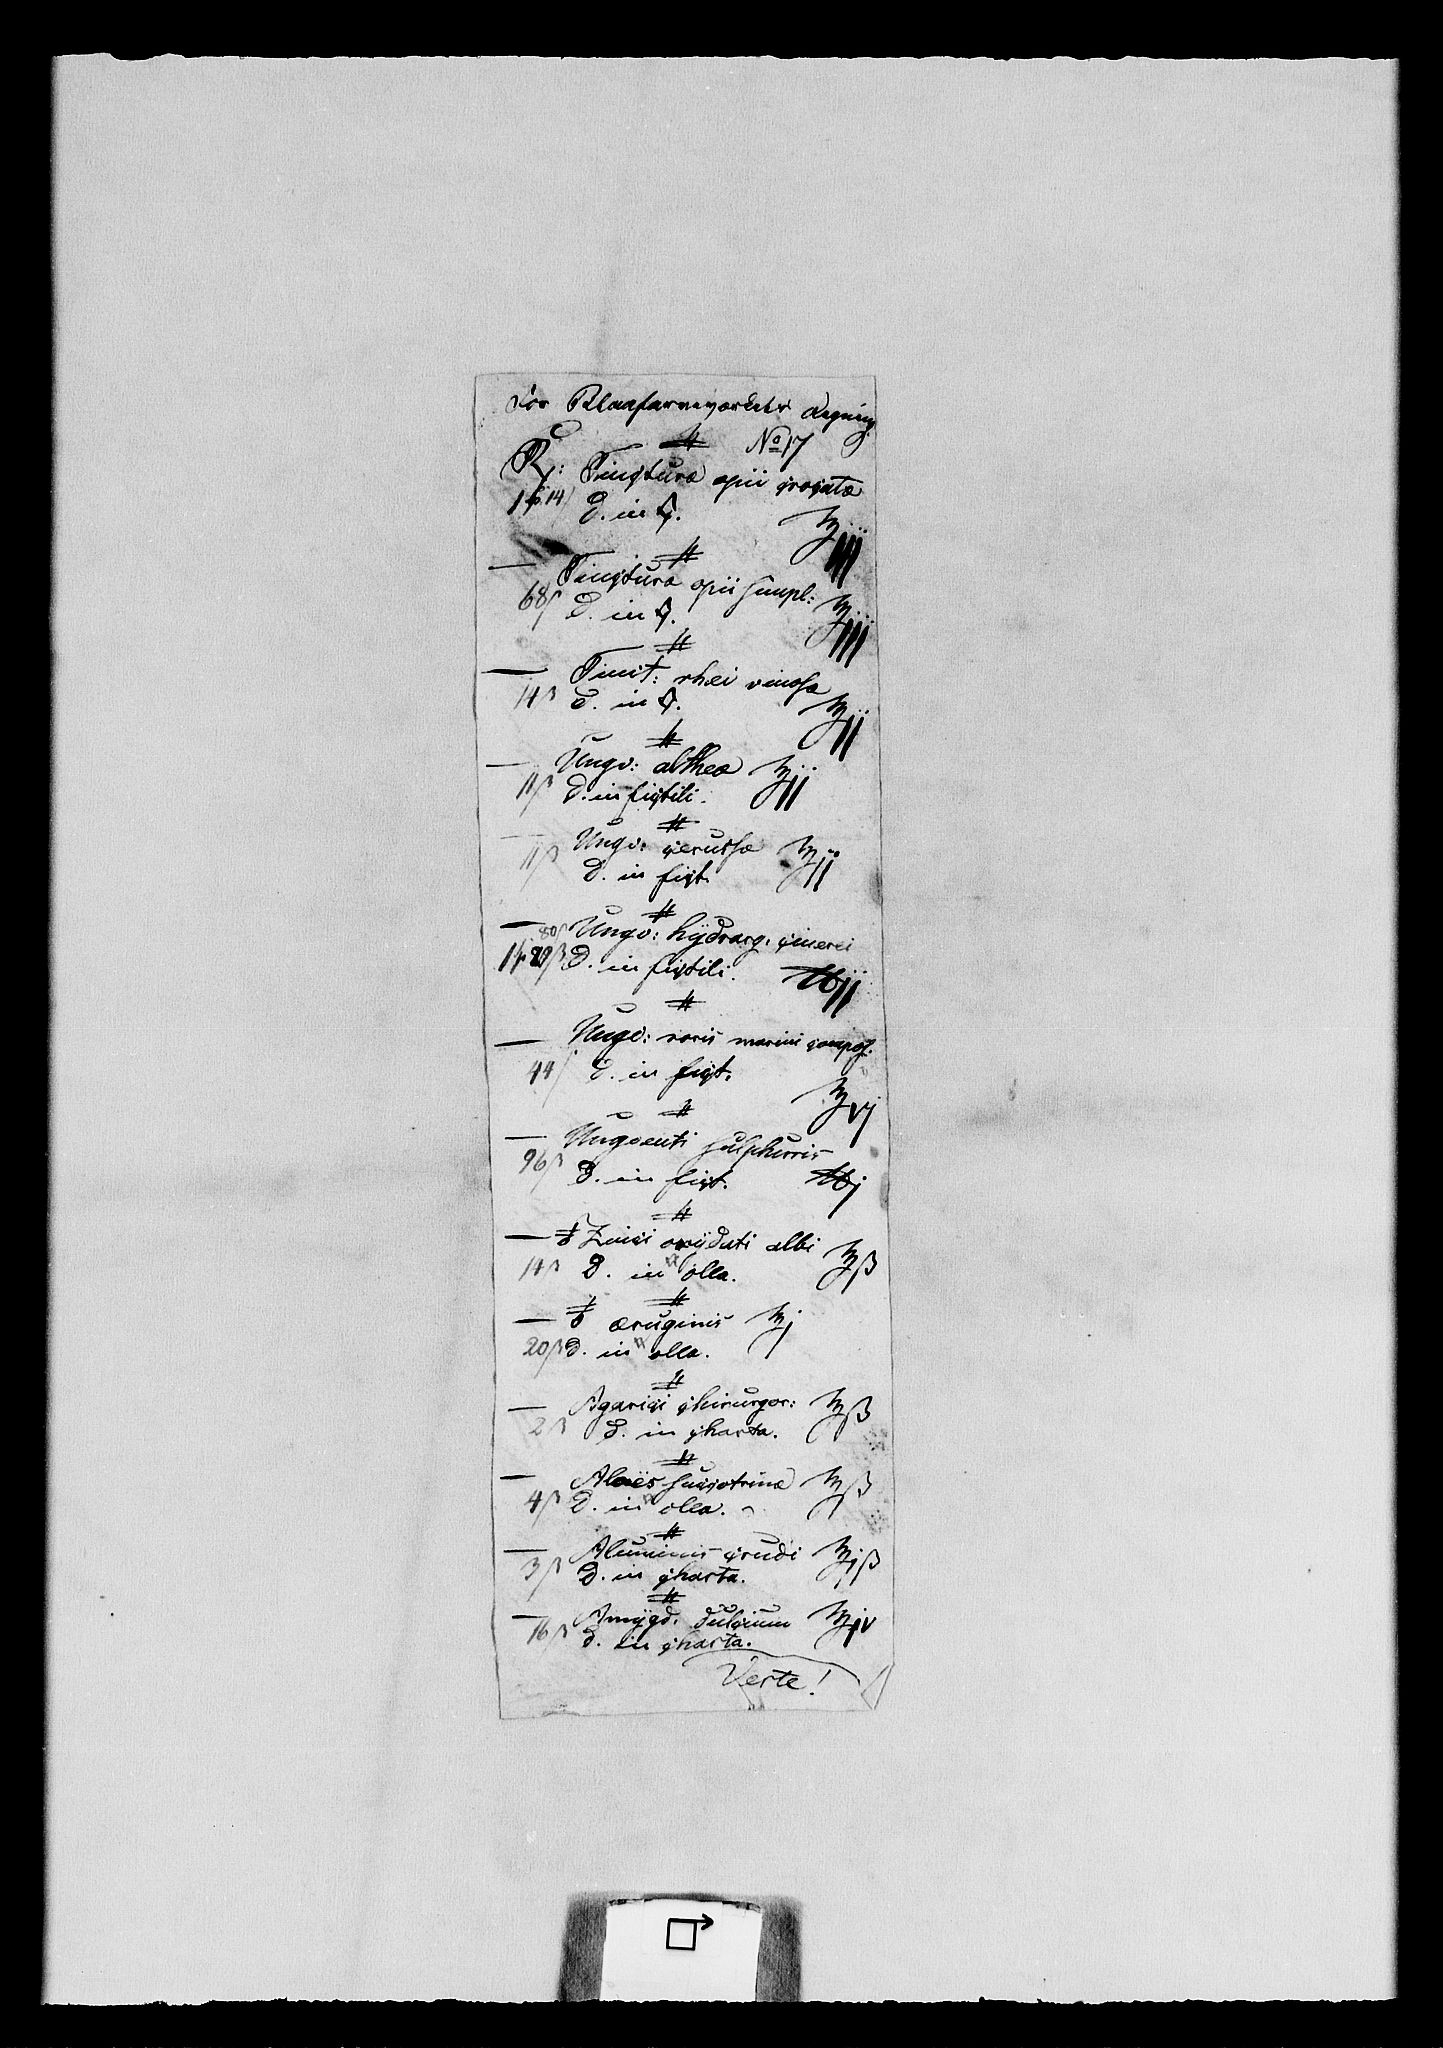 for Blaafarveværkets Regning
# No 17
R: Tinctura opii crocata
1 ß 14 D. in
℥iij
#
— Tinctura opii simpl: ℥iij
68ß D. in
#
— Tinct: rhei vinosa
14ß D. in ℥ij
#
— Ungv: altheæ ℥ij
11ß D. in fictili.
#
Ungv: cerussæ ℥ij
11ß D. in fict.
#
— 80 Ungv: hÿdrarg. cinerei
D. in fictili. ℔ij
#
— Ungv: roris marini compos:
44ß D. in fict.
℥vj
#
— Ungventi sulphuris
96ß D. in fict. ℔j
#
— Zinci oxÿdati albi ℥ß
14ß D. in olla.
#
— æruginis ℥j
20ß D. in olla.
#
— Agarici chirurgor: ℥ß
2ß D. in charta.
#
— Aloës succotrinæ ℥ß
4ß D. in olla.
#
— Aluminis crudi ℥jß
3ß D. in charta.
#
— Amÿgd. dulcium ℥iv
16ß D. in charta.
Verte!